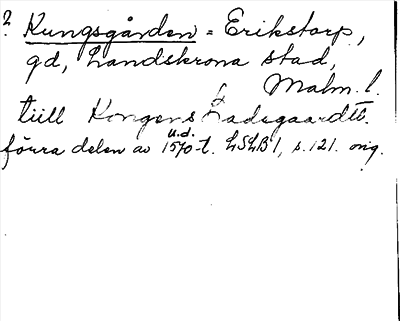 ? Kungsgården = Erikstorp,
gd, Landskrona stad,
Malm. l.
tiill Kongens Ladegaardtt.
u.d.
förra delen av 1570-t. LSLB 1, s. 121. orig.